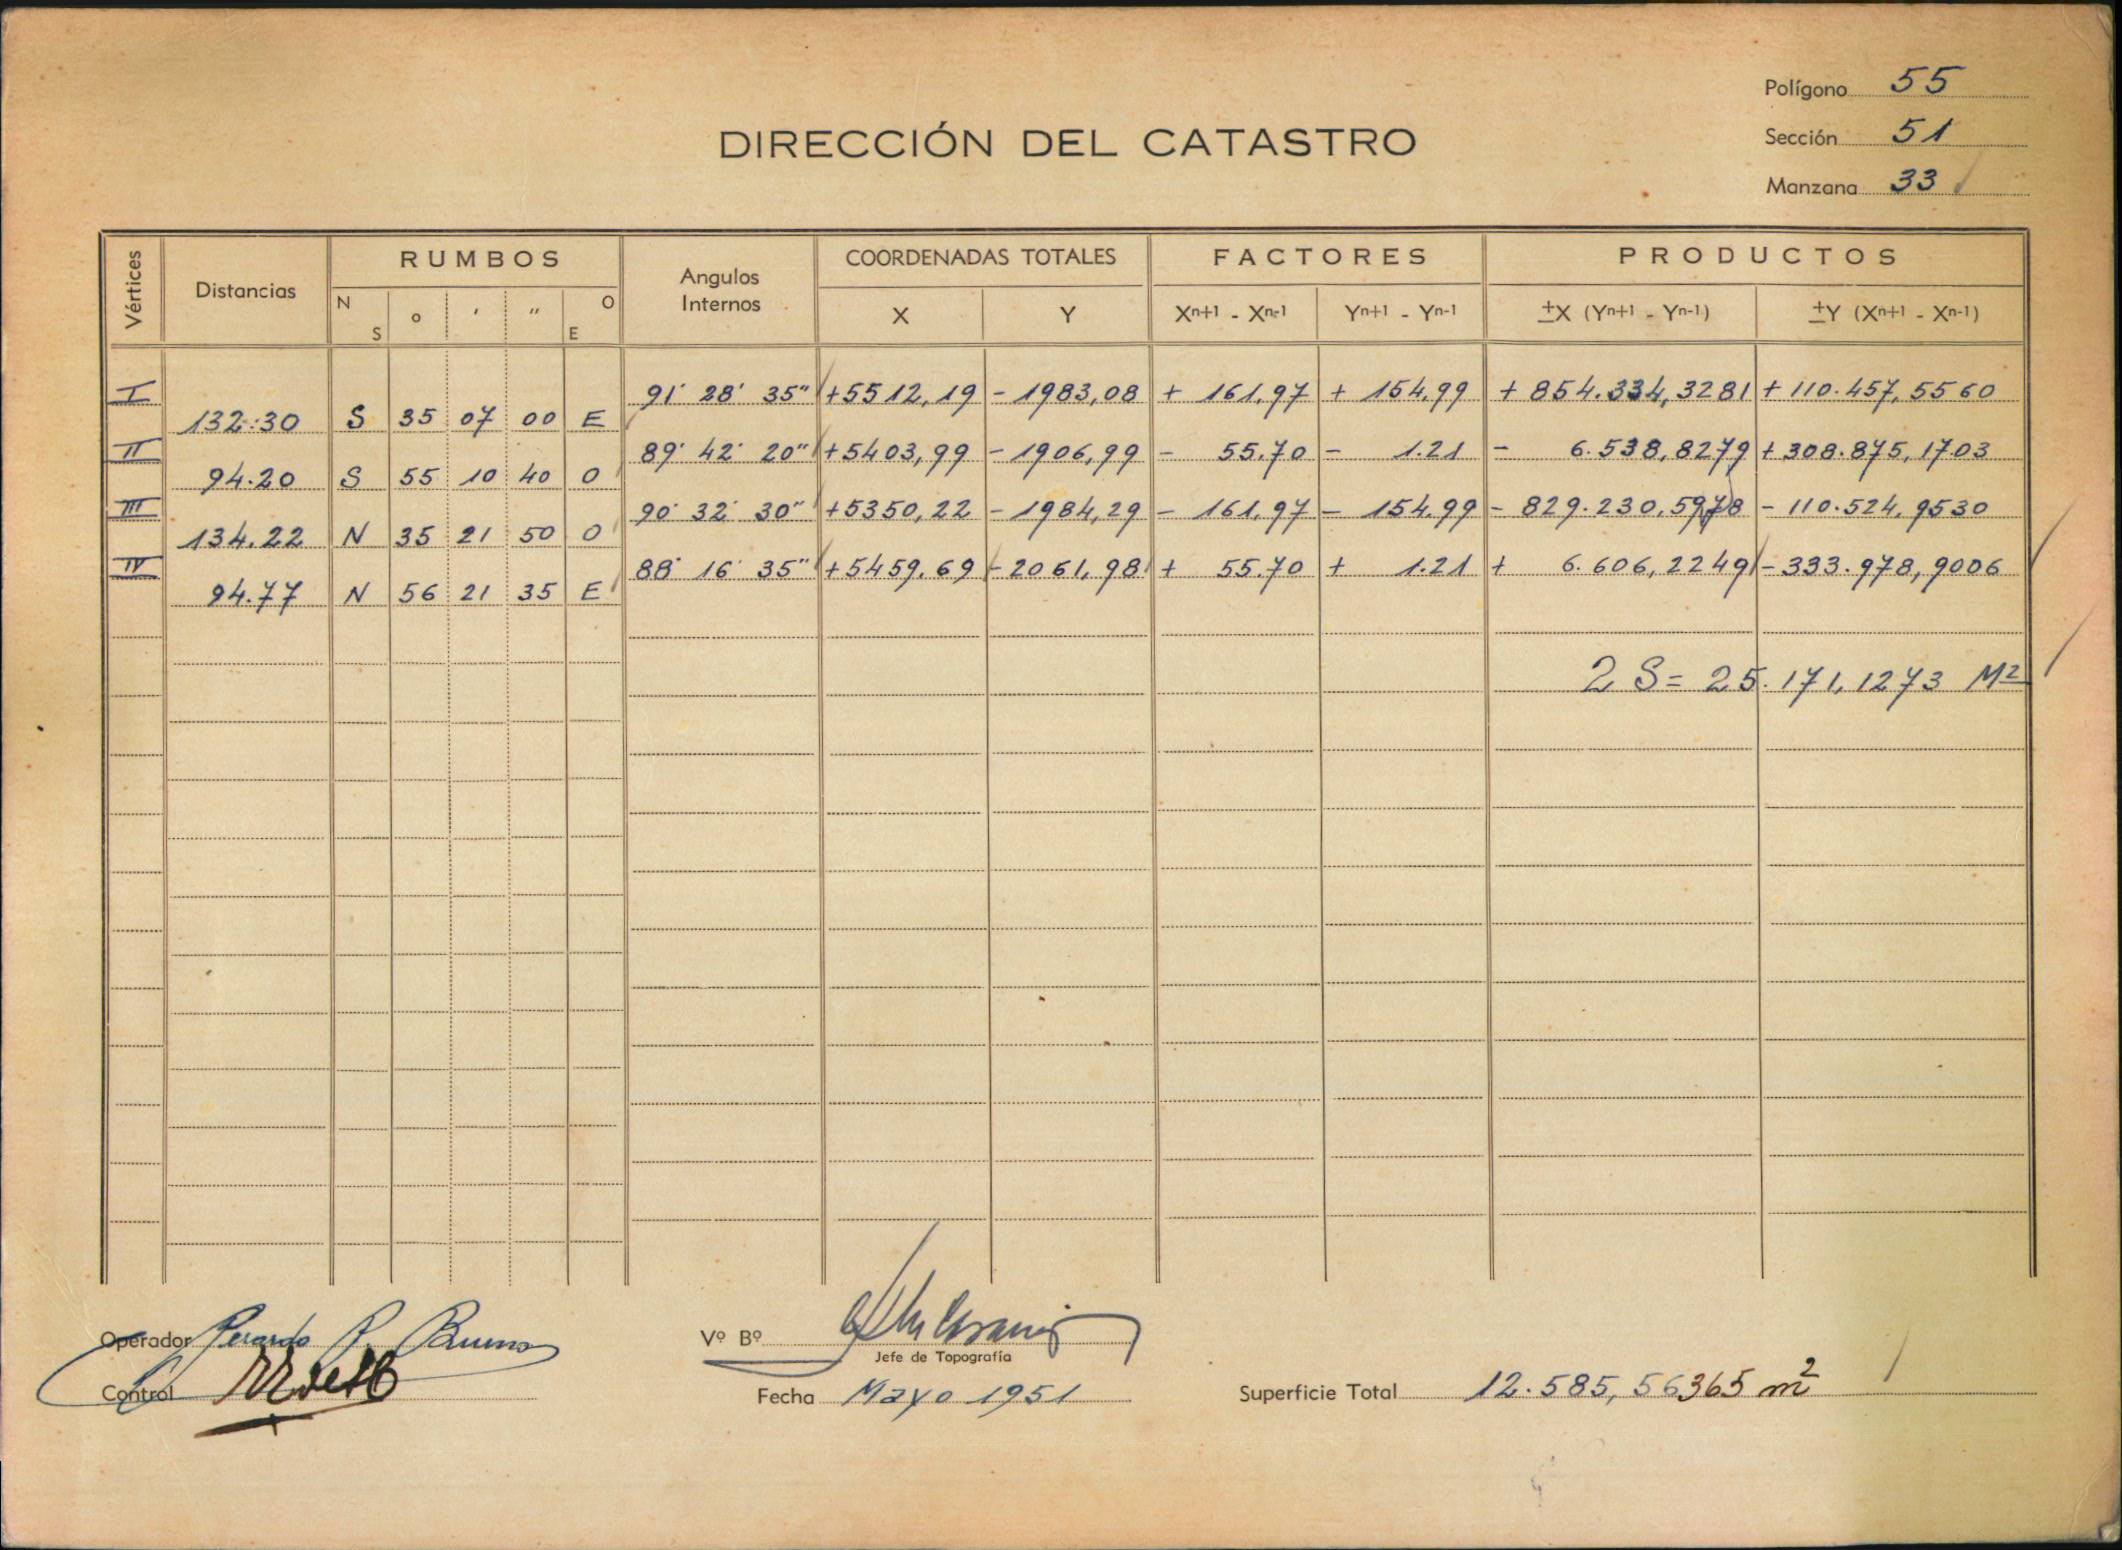 Polígono 55
DIRECCIÓN DEL CATASTRO
Sección 51
Manzana 33
Vértices Distancias RUMBOS Angulos Internos COORDENADAS TOTALES FACTORES PRODUCTOS
N S o ' " O E X Y Xn+1 - Xn-1 Yn+1 - Yn-1 ±X (Yn+1 - Yn-1) ±Y (Xn+1 - Xn-1)
I 91° 28' 35" +5512,19 - 1983,08 + 161,97 + 154,99 + 854.334,3281 + 110.457,5560
132.30 S 35 07 00 E
II 89° 42' 20" +5403,99 - 1906,99 - 55.70 - 1.21 - 6.538,8279 + 308.875,1703
94.20 S 55 10 40 O
III 90° 32' 30" +5350,22 - 1984,29 - 161,97 - 154.99 - 829.230,5978 - 110.524,9530
134.22 N 35 21 50 O
IV 88° 16' 35" +5459.69 - 2061,98 + 55.70 + 1.21 + 6.606,2249 - 333.978,9006
94.77 N 56 21 35 E
2 S = 25.171,1273 M2
Operador Gerardo R. Bueno
Vº Bº
Jefe de Topografía
Control
Fecha Mayo 1951
Superficie Total 12.585,56365 m2